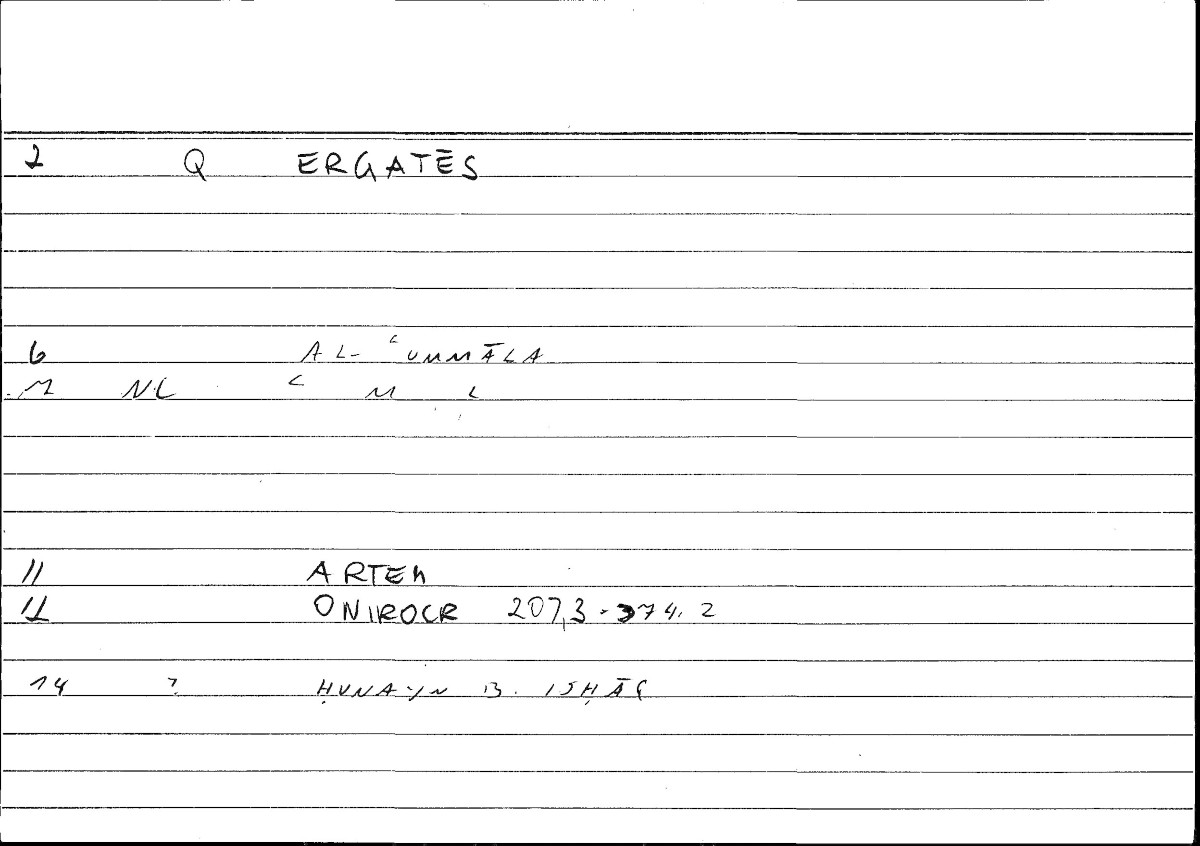 2 Q ERGATĒS
6 AL-ʿUMMĀLA
NC ʿ M L
11 ARTEM
12 ONIROCR 207,3 - 374.2
14 ? ḤUNAYN B. ISḤĀQ